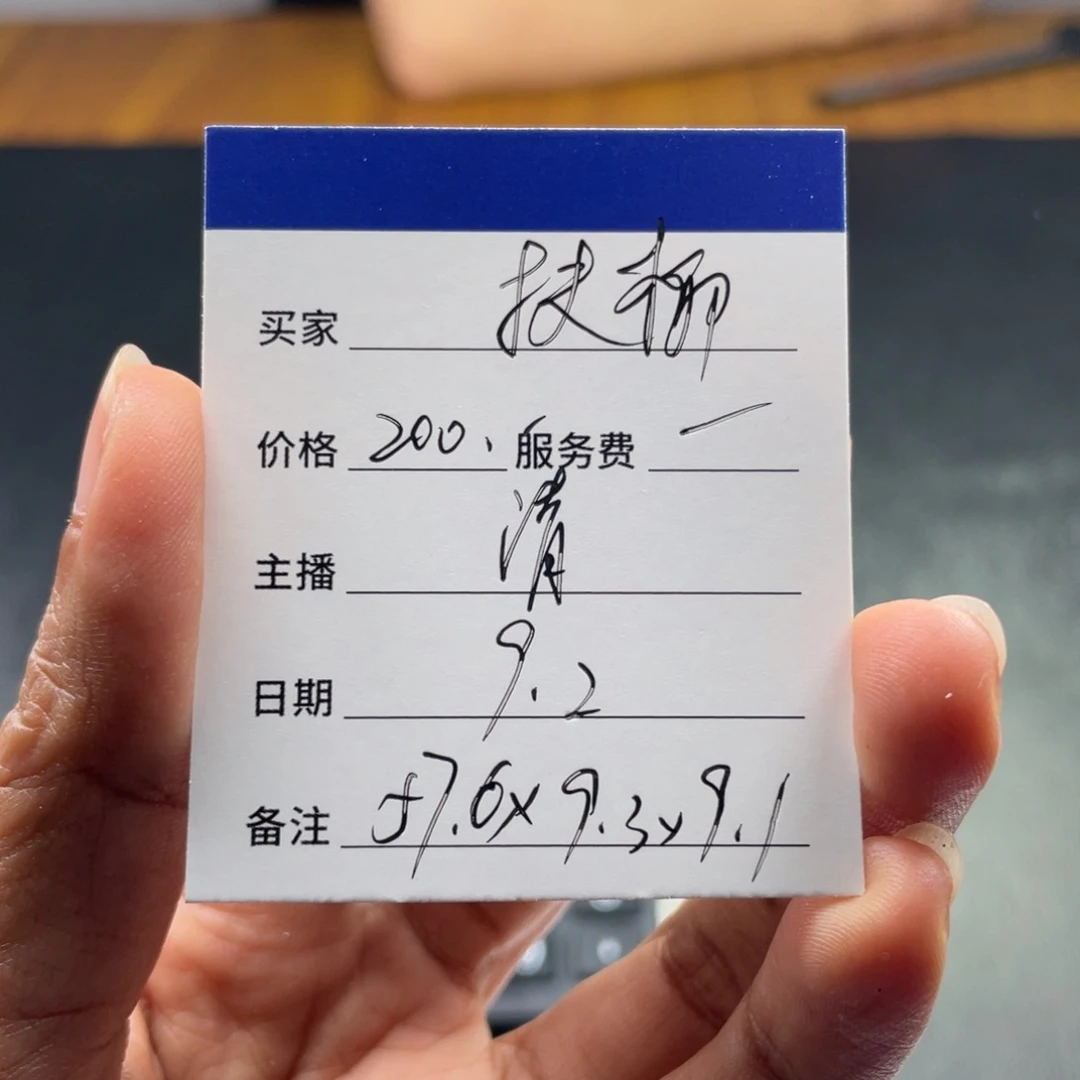 买家 扶柳
价格 200. 服务费 一
主播 清
日期 9.2
备注 57.6x9.3x9.1